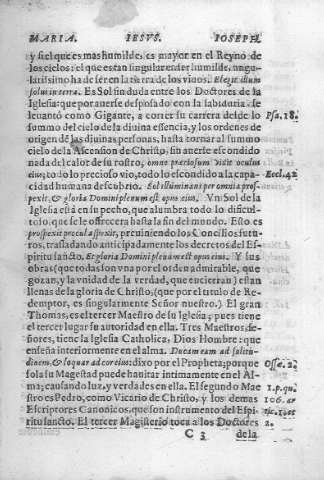 MARIA. IESVS. IOSEPH.
y si el que es mas humilde, es mayor en el Reyno de
los cielos: el que es tan singularmẽte humilde, singu-
laríssimo ha de ser en la tierra de los viuos. Elegit illum
solus in terra. Es Sol sin duda entre los Doctores de la
Iglesia: que por auerse desposado con la sabiduria, se
leuantò como Gigante, a correr su carrera desde lo Psa. 18.
summo del cielo de la diuina essencia, y los ordenes de
origen de las diuinas personas, hasta tornar al summo
cielo de la Ascension de Christo; sin auerse escondido
nada del calor de su rostro, omne pretiosum vidit oculus
eius, todo lo precioso vio, todo lo escondido a la capa- Eccl. 42
cidad humana descubrio. Sol illuminans per omnia pros-
pexit, & gloria Domini plenum est opus eius. Vn Sol de la
Iglesia està en su pecho, que alumbra todo lo dificul-
toso, que se le ofrecera hasta la fin del mundo. Esto es
prospexit procul aspexit, preuiniendo los Concilios futu-
ros, trasladando anticipadamente los decretos del Es-
piritu sancto. Et gloria Domini plenum est opus eius. Y sus
obras (que todas son vna por el orden admirable, que
gozan, y la vnidad de la verdad, que encierran) están
llenas de la gloria de Christo, (que por el titulo de Re-
demptor, es singularmente Señor nuestro.) El gran
Thomas, es el tercer Maestro de su Iglesia, pues tiene
el tercer lugar su autoridad en ella. Tres Maestros, se-
ñores, tiene la Iglesia Catholica, Dios Hombre: que
enseña interiormente en el alma. Ducam eam ad solitu-
dinem, & loquar ad cor eius: dixo por el Propheta; porque Osse. 2.
sola su Magestad puede habitar intimamente en el Al-
ma; causando luz, y verdades en ella. El segundo Mae 1. p. qu.
stro es Pedro, como Vicario de Christo, y los demas 106. ar
Escriptores Canonicos, que son instrumento del Espi-
ritu sancto. El tercer Magisterio toca a los Doctores 2.
C 3 de la